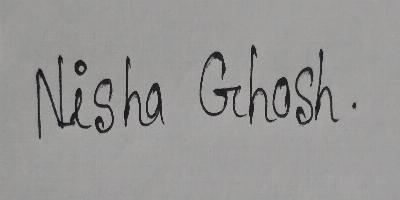 Nisha Ghosh.